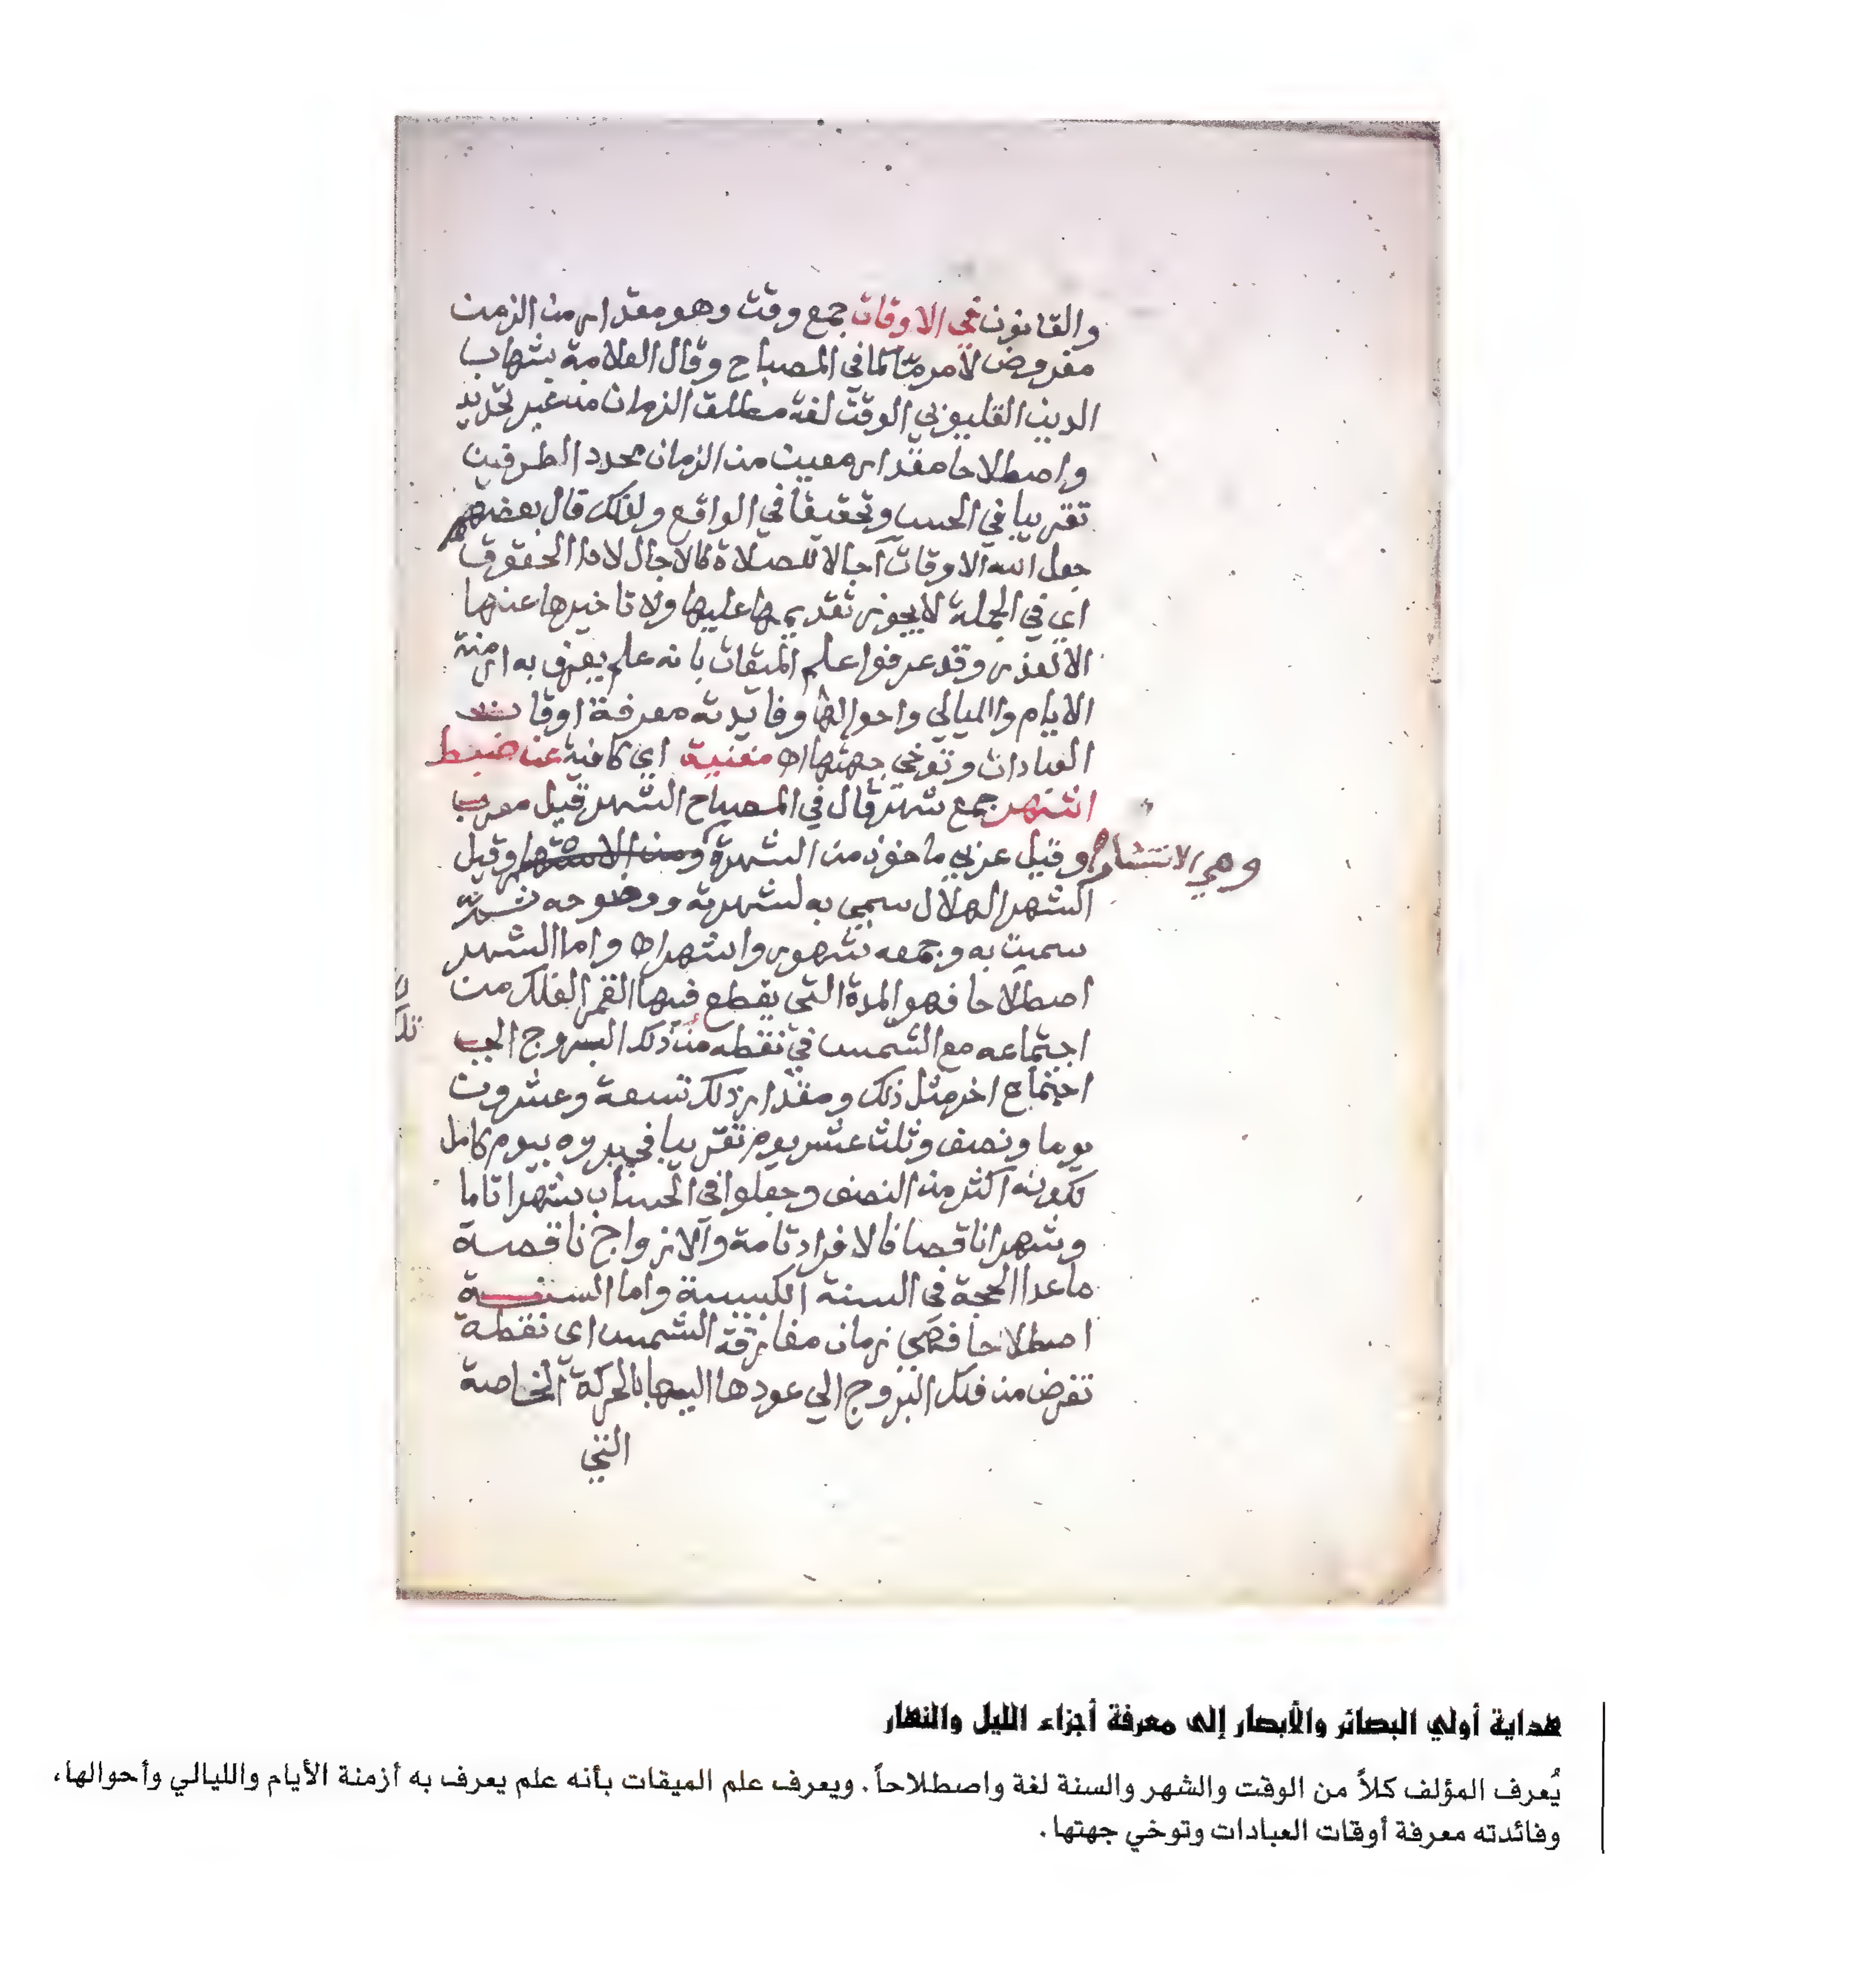 والقانون في الاوقات جمع وقت وهو مقدار من الزمن
مفروض لامر ما كما في المصباح وقال العلامة شهاب
الدين القليوبي الوقت لغة مطلق الزمان من غير تحديد
واصطلاحا مقدار معين من الزمان محدد الطرفين
تقريبا في الحس وتحقيقا في الواقع ولذلك قال بعضهم
جعل الله الاوقات آجالا للصلاة كالاجال لاداء الحقوق
اي في الجملة لا يجوز تقديمها عليها ولا تاخيرها عنها
الا لعذر وقد عرفوا علم الميقات بانه علم يعرف به ازمنة
الايام والليالي واحوالها وفايدته معرفة اوقات
العبادات وتوخي جهتها اه مغنية اي كافية عن ضبط
اشهر جمع شهر قال في المصباح الشهر قيل معرب
وقيل عربي ماخوذ من الشهرة وقيل
وهي الانتشار
الشهر الهلال سمي به لشهرته ووضوحه ثم
سميت به وجمعه شهور واشهر اه واما الشهر
اصطلاحا فهو المدة التي يقطع فيها القمر الفلك من
اجتماعه مع الشمس في نقطه من ذلك البروج الي
اجتماع اخر مثل ذلك ومقدار ذلك تسعة وعشرون
يوما ونصف وثلث عشر يوم تقريبا بيوم كامل
لكونه اكثر من النصف وجعلوا في الحساب شهرا تاما
وشهرا ناقصا فالافراد تامة والازواج ناقصة
ما عدا الحجة في السنة الكبيسة واما السنة
اصطلاحا فهي زمان مفارقة الشمس اي نقطة
تفرض من فلك البروج الي عودها اليها بالحركة الخاصة
التي
هداية أولي البصائر والأبصار إلى معرفة أجزاء الليل والنهار
يُعرف المؤلف كلاً من الوقت والشهر والسنة لغة واصطلاحاً. ويعرف علم الميقات بأنه علم يعرف به أزمنة الأيام والليالي وأحوالها،
وفائدته معرفة أوقات العبادات وتوخي جهتها.